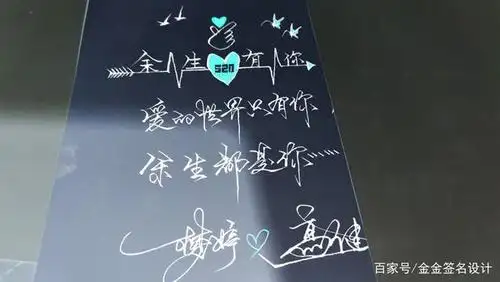 余生 520 有你
爱的世界只有你
余生都是你……
婷♡高健
百家号/金金签名设计